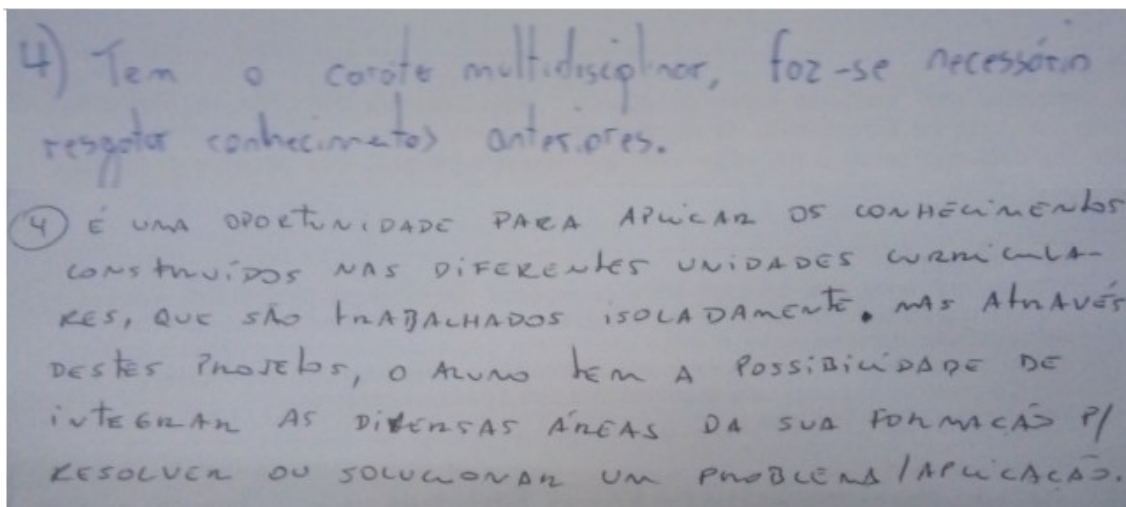 4) Tem o caráter multidisciplinar, faz-se necessário
resgatar conhecimentos anteriores.
4 É UMA OPORTUNIDADE PARA APLICAR OS CONHECIMENTOS
CONSTRUÍDOS NAS DIFERENTES UNIDADES CURRICULA-
RES, QUE SÃO TRABALHADOS ISOLADAMENTE. MAS ATRAVÉS
DESTES PROJETOS, O ALUNO TEM A POSSIBILIDADE DE
INTEGRAR AS DIVERSAS ÁREAS DA SUA FORMAÇÃO P/
RESOLVER OU SOLUCIONAR UM PROBLEMA/APLICAÇÃO.